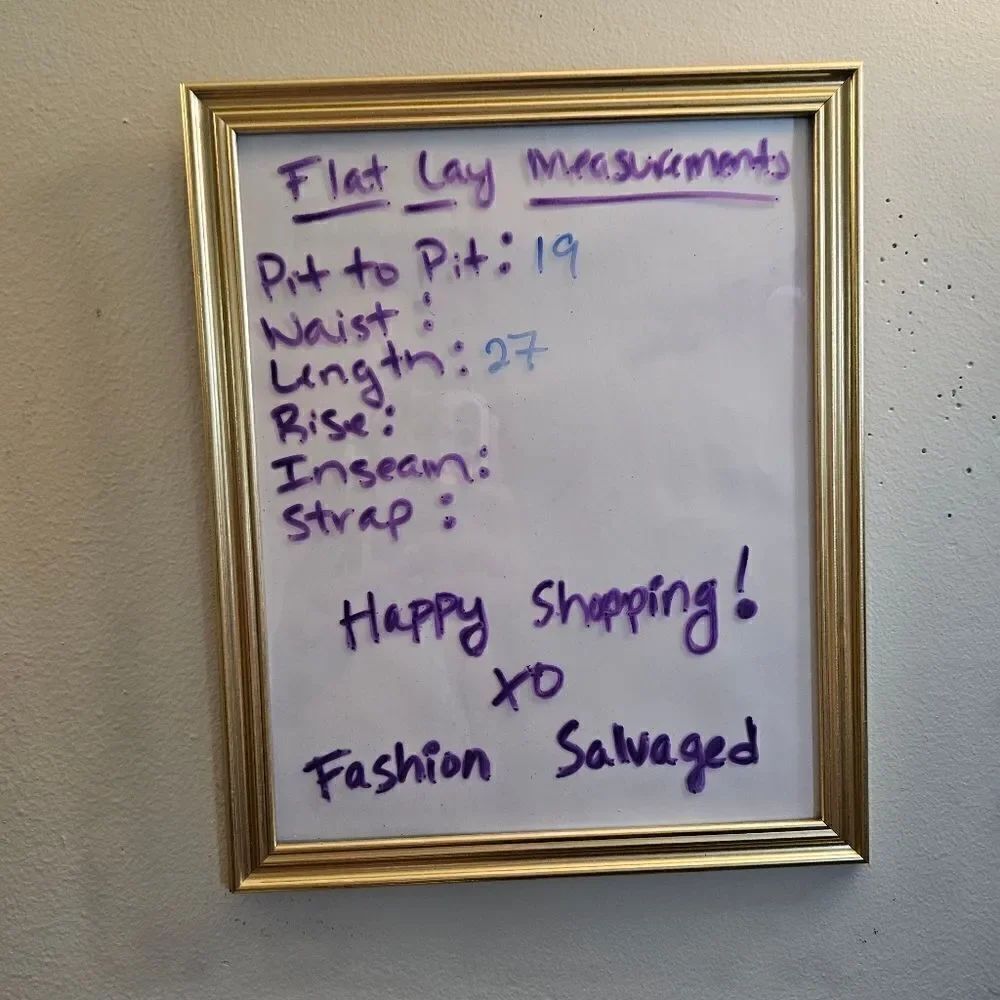 Flat Lay Measurements
Pit to Pit: 19
Waist:
Length: 27
Rise:
Inseam:
Strap:
Happy Shopping!
XO
Fashion Salvaged